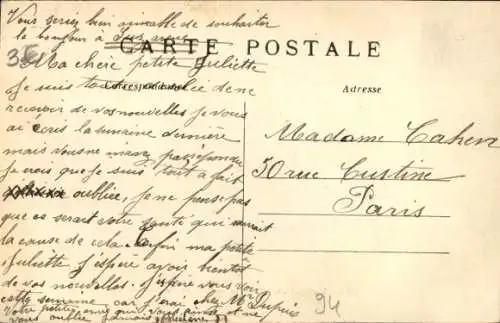 Vous seriez bien aimable de souhaiter
le bonjour à
35
CARTE POSTALE
Ma chère petite Juliette
Correspondance
Adresse
Je suis toute de ne
recevoir de vos nouvelles je vous
ai écris la semaine dernière
mais vous ne m'avez pas répondu
je crois que je suis tout à fait
oubliée, je ne pense pas
que ce serait votre santé qui serait
la cause de cela. Enfin ma petite
Juliette j'espère avoir bientôt
de vos nouvelles. J'espère vous voir
cette semaine car j'irai chez Me Dupuis
Votre petite amie qui vous aime et ne
vous oublie jamais
Madame Cahen
50 rue Custine
Paris
94